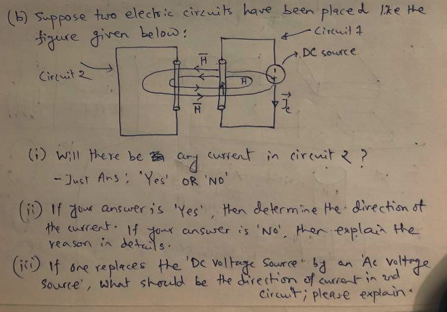 (b) Suppose two electric circuits have been placed like the
figure given below:
Circuit 1
DC source
H
Circuit 2
H
H
(i) Will there be any current in circuit 2 ?
- Just Ans: 'Yes' OR 'NO'
(ii) If your answer is 'Yes', then determine the direction of
the current. If your answer is 'No', then explain the
reason in details.
(iii) If one replaces the 'DC voltage source' by an 'AC voltage
source', what should be the direction of current in 2nd
circuit; please explain.